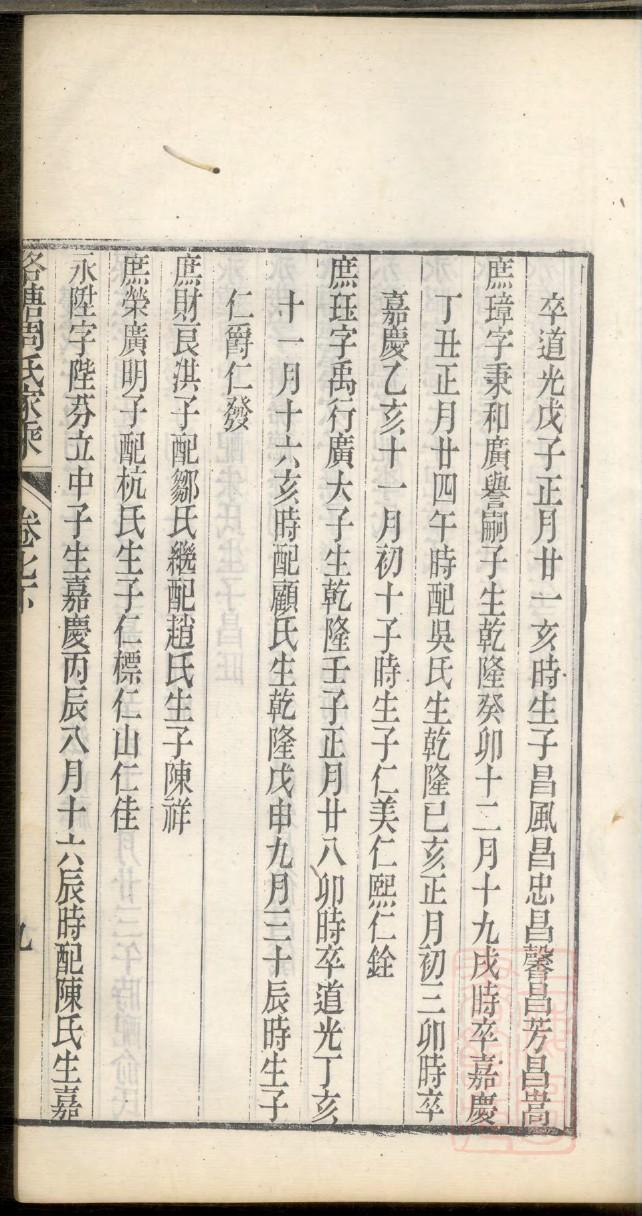 卒道光戊子正月廿一亥時生子昌風昌忠昌馨昌芳昌嵩
庶璋字秉和廣譽嗣子生乾隆癸卯十二月十九戌時卒嘉慶
丁丑正月廿四午時配吳氏生乾隆已亥正月初三卯時卒
嘉慶乙亥十一月初十子時生子仁美仁熙仁銓
庶珏字禹行廣大子生乾隆壬子正月廿八卯時卒道光丁亥
十一月十六亥時配顧氏生乾隆戊申九月三十辰時生子
仁爵仁發
庶財良淇子配鄒氏繼配趙氏生子陳祥
庶榮廣明子配杭氏生子仁標仁山仁佳
永陞字陛芬立中子生嘉慶丙辰八月十六辰時配陳氏生嘉
周氏家乘 卷 九